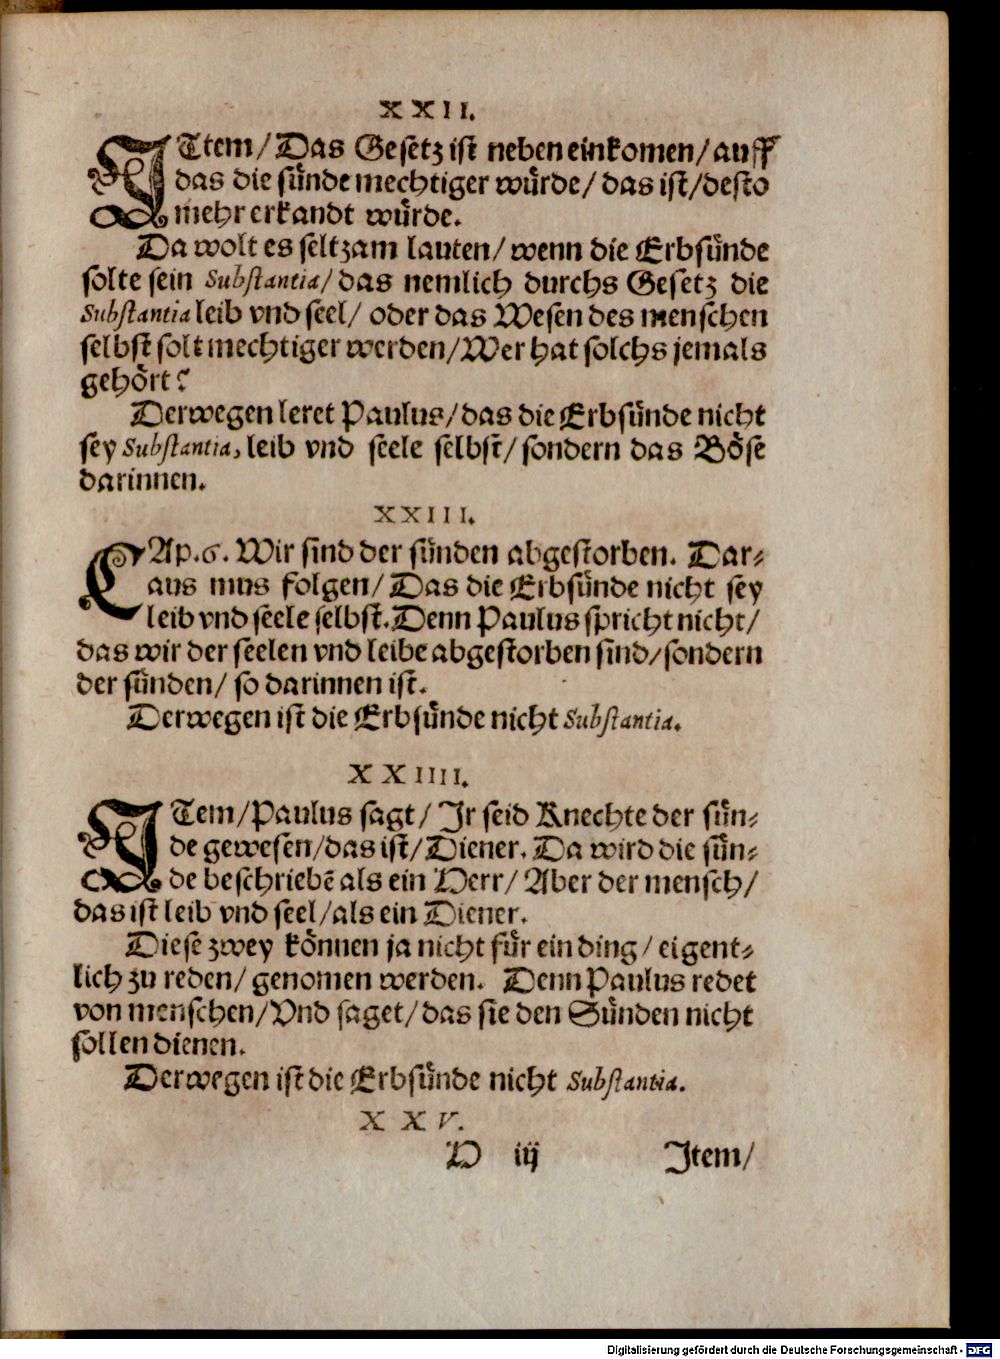 XXII.
ITtem/Das Gesetz ist neben einkomen/auff
das die sünde mechtiger würde/das ist/desto
mehr erkandt würde.
Da wolt es seltzam lauten/wenn die Erbsünde
solte sein Substantia/das nemlich durchs Gesetz die
Substantia leib vnd seel/oder das Wesen des menschen
selbst solt mechtiger werden/Wer hat solchs jemals
gehört?
Derwegen leret Paulus/das die Erbsünde nicht
sey Substantia, leib vnd seele selbst/sondern das Böse
darinnen.
XXIII.
CAp.6. Wir sind der sünden abgestorben. Dar-
aus mus folgen/Das die Erbsünde nicht sey
leib vnd seele selbst. Denn Paulus spricht nicht/
das wir der seelen vnd leibe abgestorben sind/sondern
der sünden/so darinnen ist.
Derwegen ist die Erbsünde nicht Substantia.
XXIIII.
ITem/Paulus sagt/Jr seid Knechte der sün-
de gewesen/das ist/Diener. Da wird die sün-
de beschriebē als ein Herr/Aber der mensch/
das ist leib vnd seel/als ein Diener.
Diese zwey können ja nicht für ein ding/eigent-
lich zu reden/genomen werden. Denn Paulus redet
von menschen/Vnd saget/das sie den Sünden nicht
sollen dienen.
Derwegen ist die Erbsünde nicht Substantia.
XXV.
D iij Item/
Digitalisierung gefördert durch die Deutsche Forschungsgemeinschaft - DFG